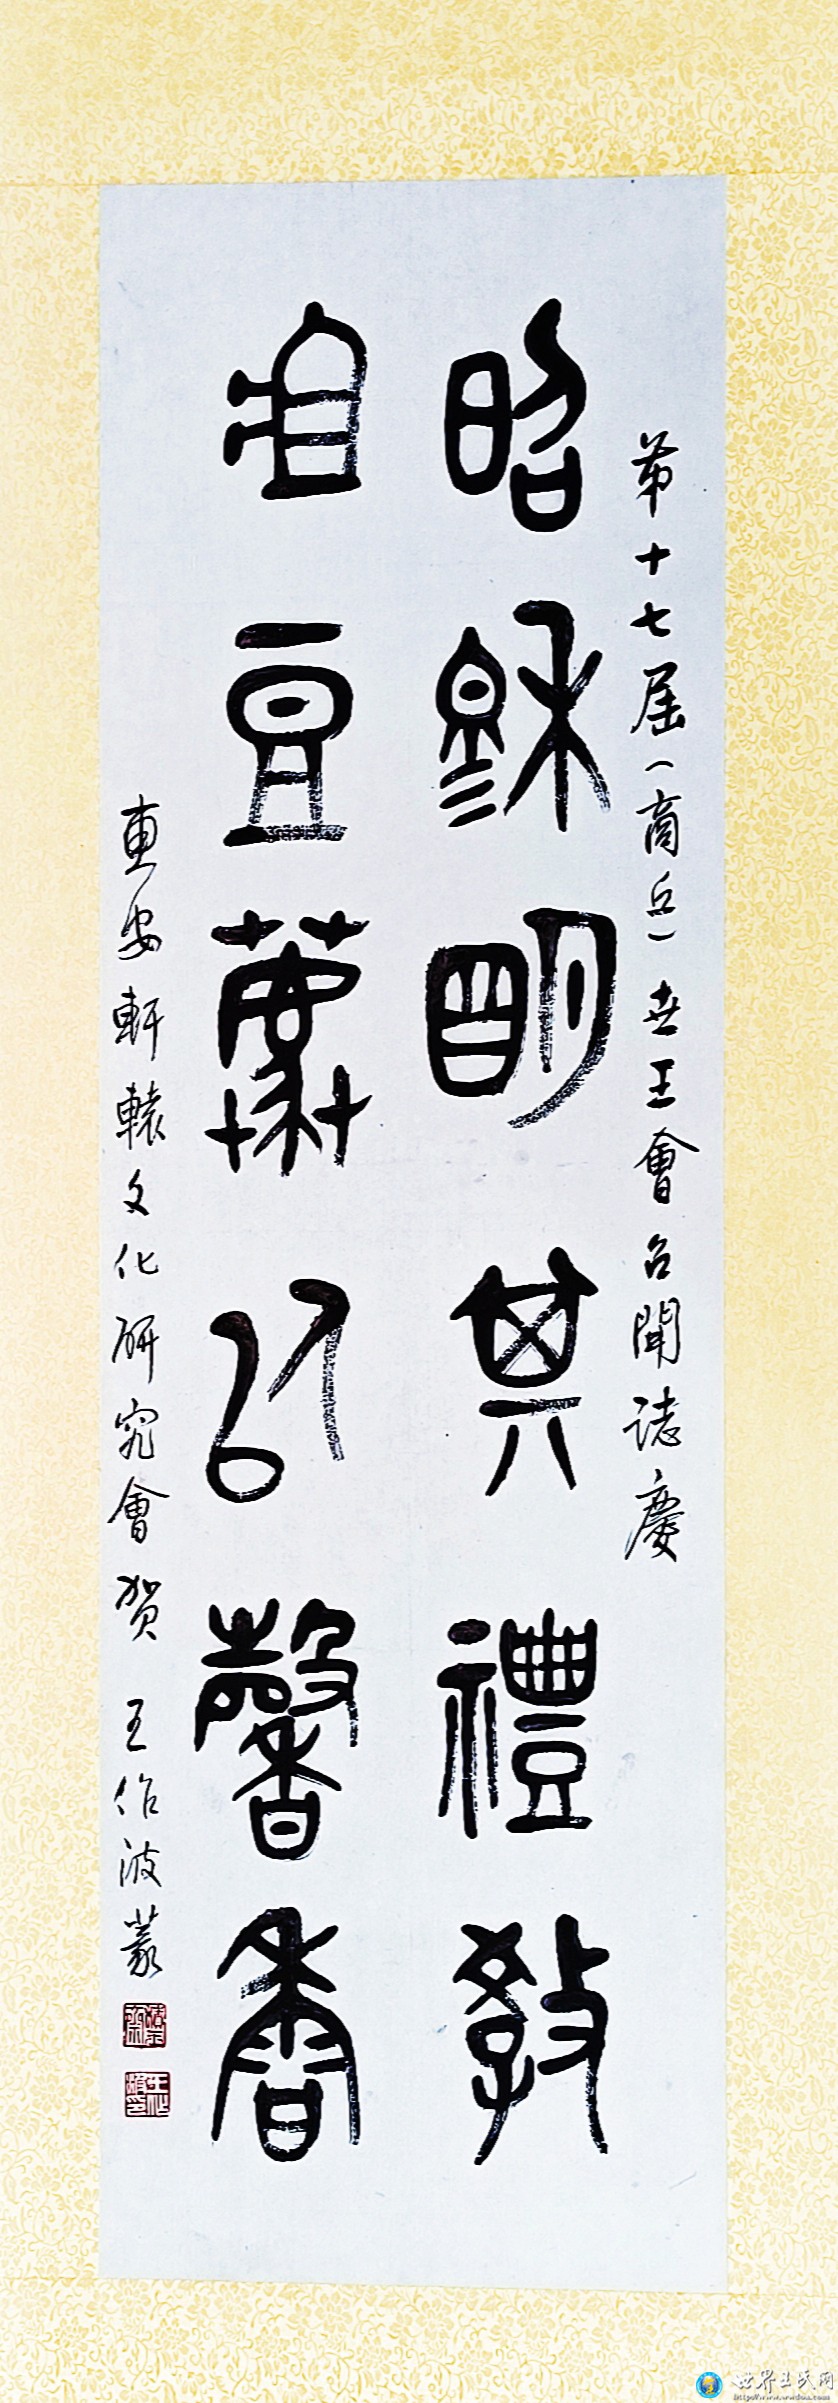 第十七届（商丘）世王會召開誌慶
昭穆明其禮教
俎豆薦以馨香
東安軒轅文化研究會贺 王作波篆
世界王氏网